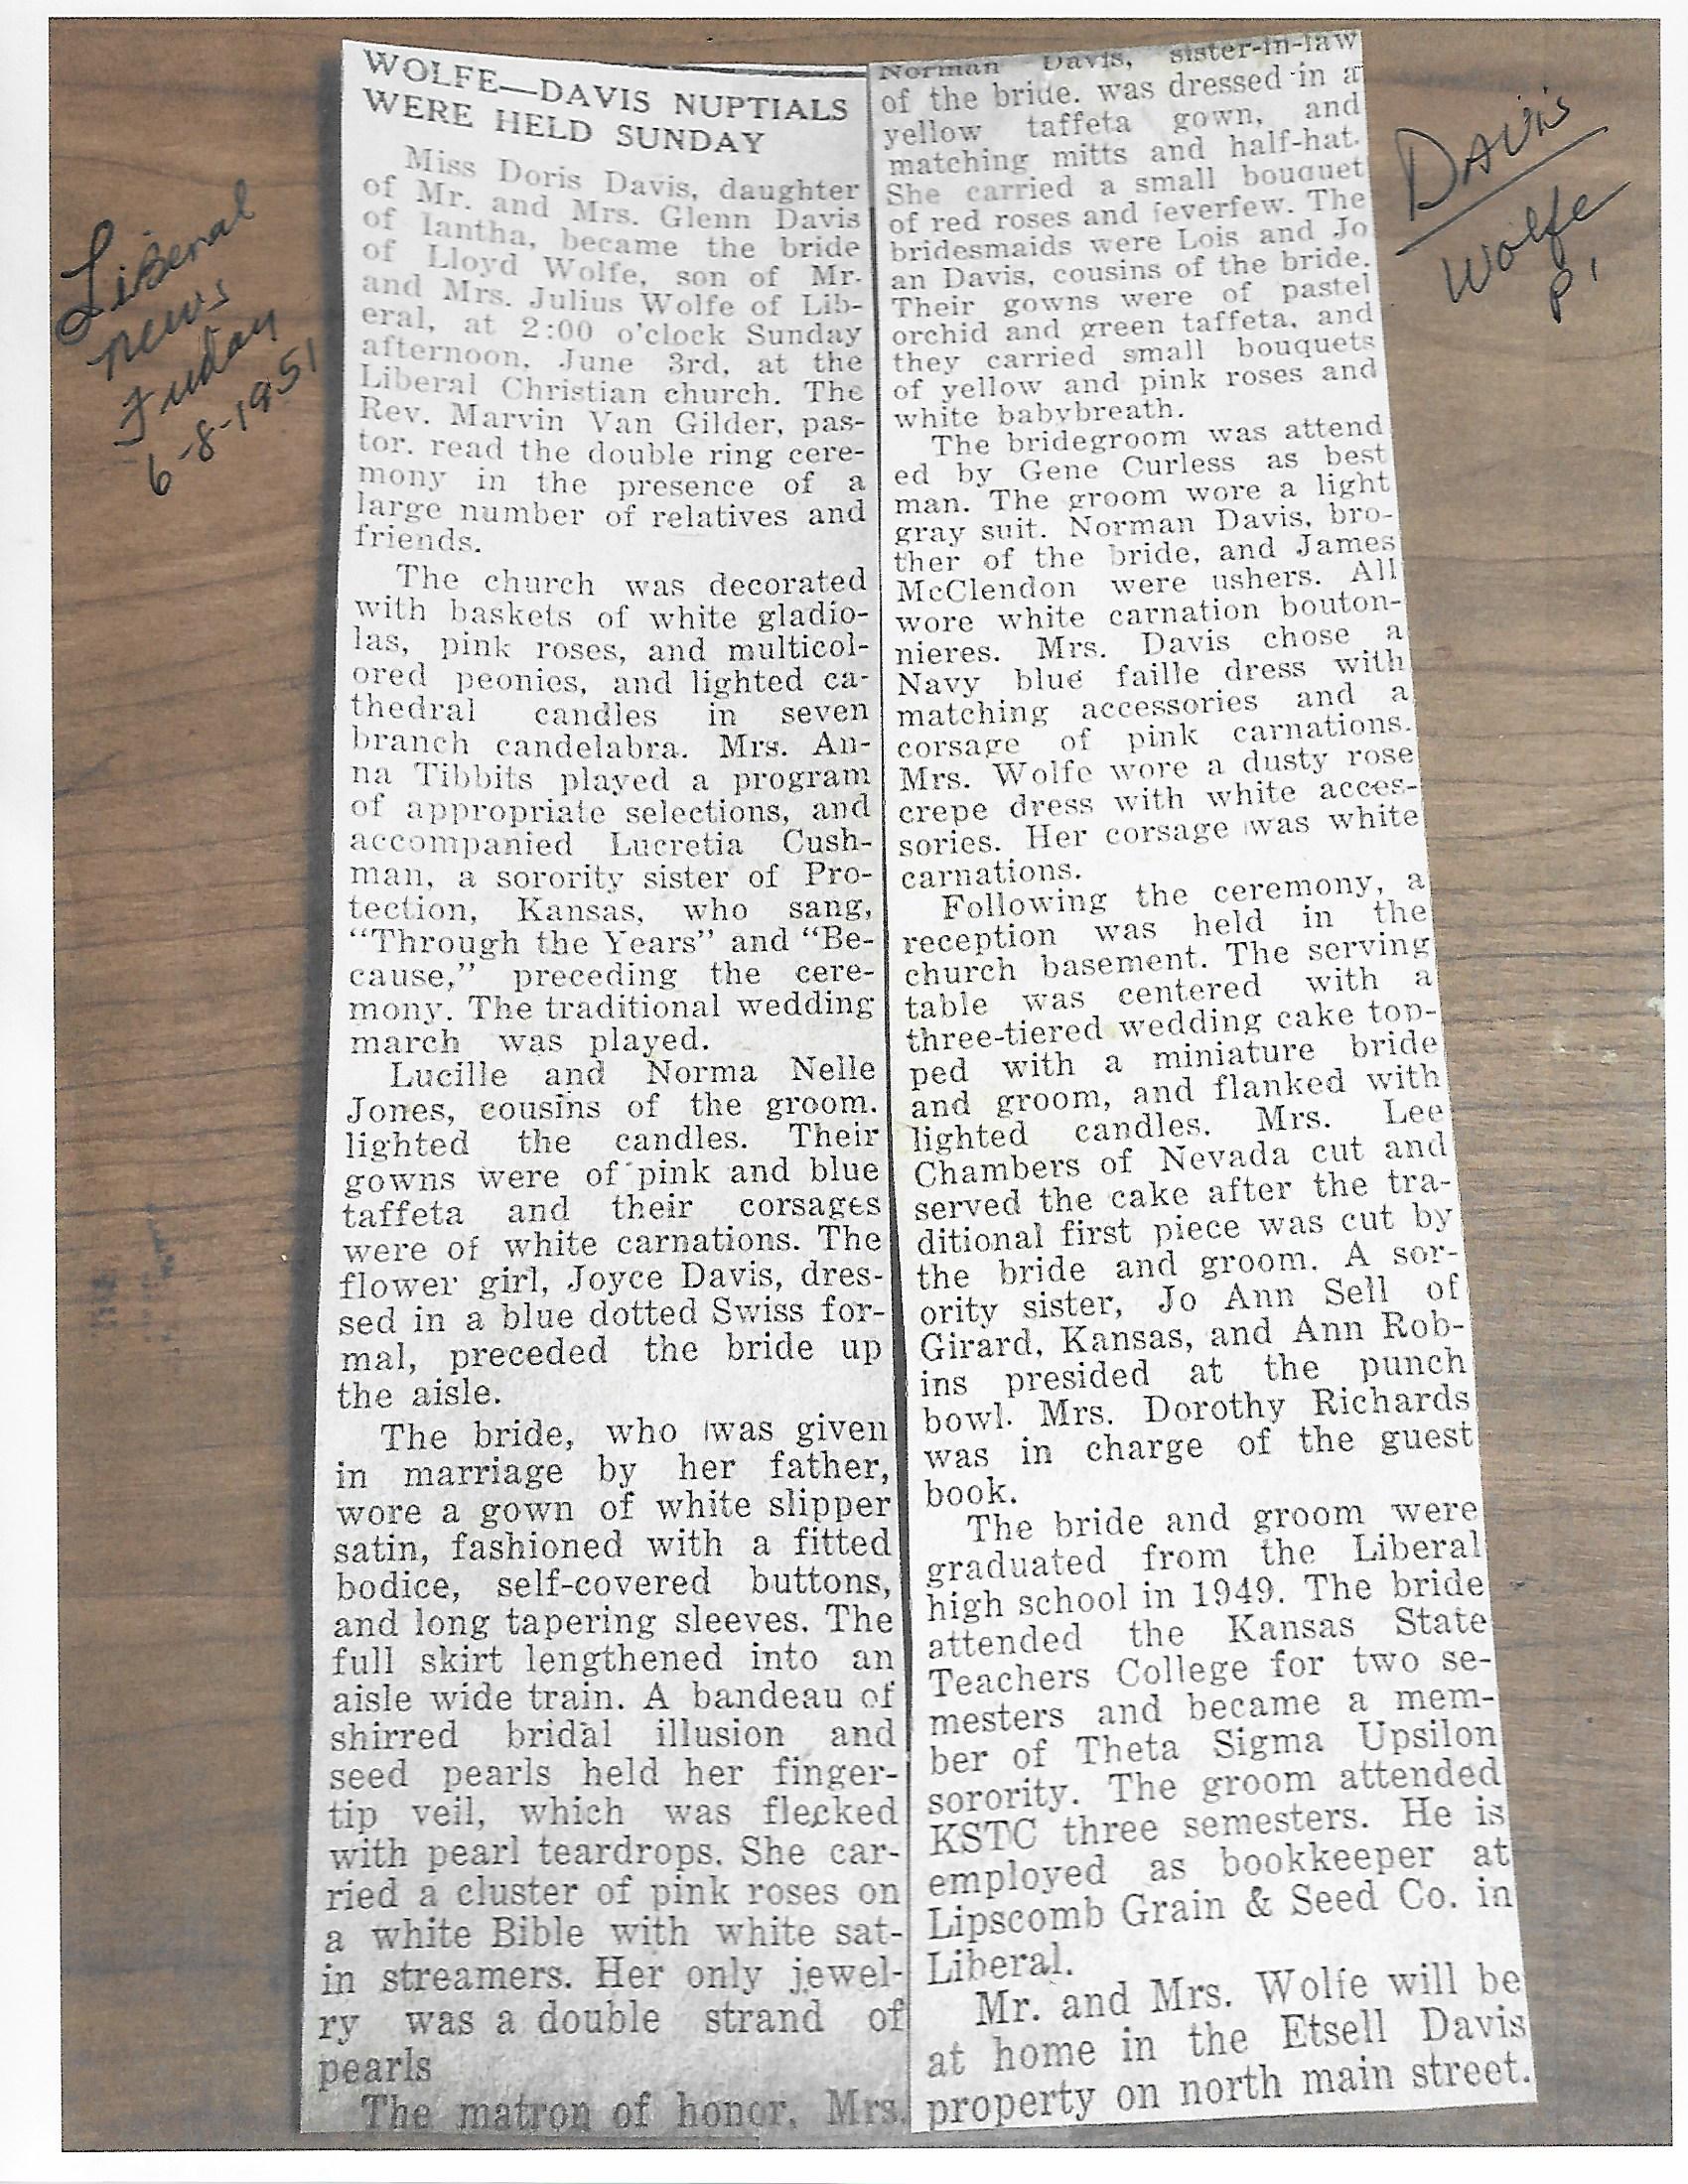 Liberal
News
Friday
6-8-1951
WOLFE—DAVIS NUPTIALS
WERE HELD SUNDAY
Miss Doris Davis, daughter
of Mr. and Mrs. Glenn Davis
of Iantha, became the bride
of Lloyd Wolfe, son of Mr.
and Mrs. Julius Wolfe of Lib-
eral, at 2:00 o'clock Sunday
afternoon, June 3rd, at the
Liberal Christian church. The
Rev. Marvin Van Gilder, pas-
tor. read the double ring cere-
mony in the presence of a
large number of relatives and
friends.
The church was decorated
with baskets of white gladio-
las, pink roses, and multicol-
ored peonies, and lighted ca-
thedral candles in seven
branch candelabra. Mrs. An-
na Tibbits played a program
of appropriate selections, and
accompanied Lucretia Cush-
man, a sorority sister of Pro-
tection, Kansas, who sang,
"Through the Years" and "Be-
cause," preceding the cere-
mony. The traditional wedding
march was played.
Lucille and Norma Nelle
Jones, cousins of the groom.
lighted the candles. Their
gowns were of pink and blue
taffeta and their corsages
were of white carnations. The
flower girl, Joyce Davis, dres-
sed in a blue dotted Swiss for-
mal, preceded the bride up
the aisle.
The bride, who was given
in marriage by her father,
wore a gown of white slipper
satin, fashioned with a fitted
bodice, self-covered buttons,
and long tapering sleeves. The
full skirt lengthened into an
aisle wide train. A bandeau of
shirred bridal illusion and
seed pearls held her finger-
tip veil, which was flecked
with pearl teardrops. She car-
ried a cluster of pink roses on
a white Bible with white sat-
in streamers. Her only jewel-
ry was a double strand of
pearls
The matron of honor, Mrs.
Norman Davis, sister-in-law
of the bride. was dressed in a
yellow taffeta gown, and
matching mitts and half-hat.
She carried a small bouquet
of red roses and feverfew. The
bridesmaids were Lois and Jo
an Davis, cousins of the bride.
Their gowns were of pastel
orchid and green taffeta, and
they carried small bouquets
of yellow and pink roses and
white babybreath.
The bridegroom was attend
ed by Gene Curless as best
man. The groom wore a light
gray suit. Norman Davis, bro-
ther of the bride, and James
McClendon were ushers. All
wore white carnation bouton-
nieres. Mrs. Davis chose a
Navy blue faille dress with
matching accessories and a
corsage of pink carnations.
Mrs. Wolfe wore a dusty rose
crepe dress with white acces-
sories. Her corsage was white
carnations.
Following the ceremony, a
reception was held in the
church basement. The serving
table was centered with a
three-tiered wedding cake top-
ped with a miniature bride
and groom, and flanked with
lighted candles. Mrs. Lee
Chambers of Nevada cut and
served the cake after the tra-
ditional first piece was cut by
the bride and groom. A sor-
ority sister, Jo Ann Sell of
Girard, Kansas, and Ann Rob-
ins presided at the punch
bowl. Mrs. Dorothy Richards
was in charge of the guest
book.
The bride and groom were
graduated from the Liberal
high school in 1949. The bride
attended the Kansas State
Teachers College for two se-
mesters and became a mem-
ber of Theta Sigma Upsilon
sorority. The groom attended
KSTC three semesters. He is
employed as bookkeeper at
Lipscomb Grain & Seed Co. in
Liberal.
Mr. and Mrs. Wolfe will be
at home in the Etsell Davis
property on north main street.
Davis
Wolfe
P 1